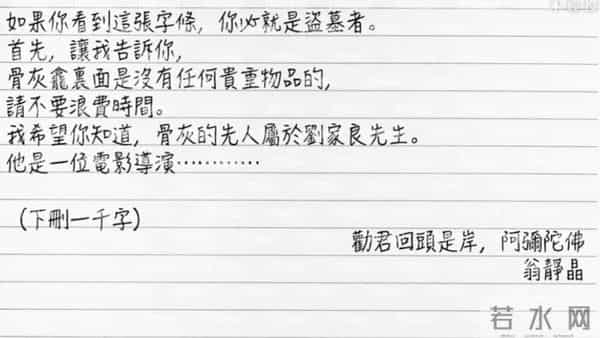 如果你看到這張字條，你必就是盜墓者。
首先，讓我告訴你，
骨灰龕裏面是沒有任何貴重物品的，
請不要浪費時間。
我希望你知道，骨灰的先人屬於劉家良先生。
他是一位電影導演…………
（下刪一千字）
勸君回頭是岸，阿彌陀佛
翁靜晶
若水网